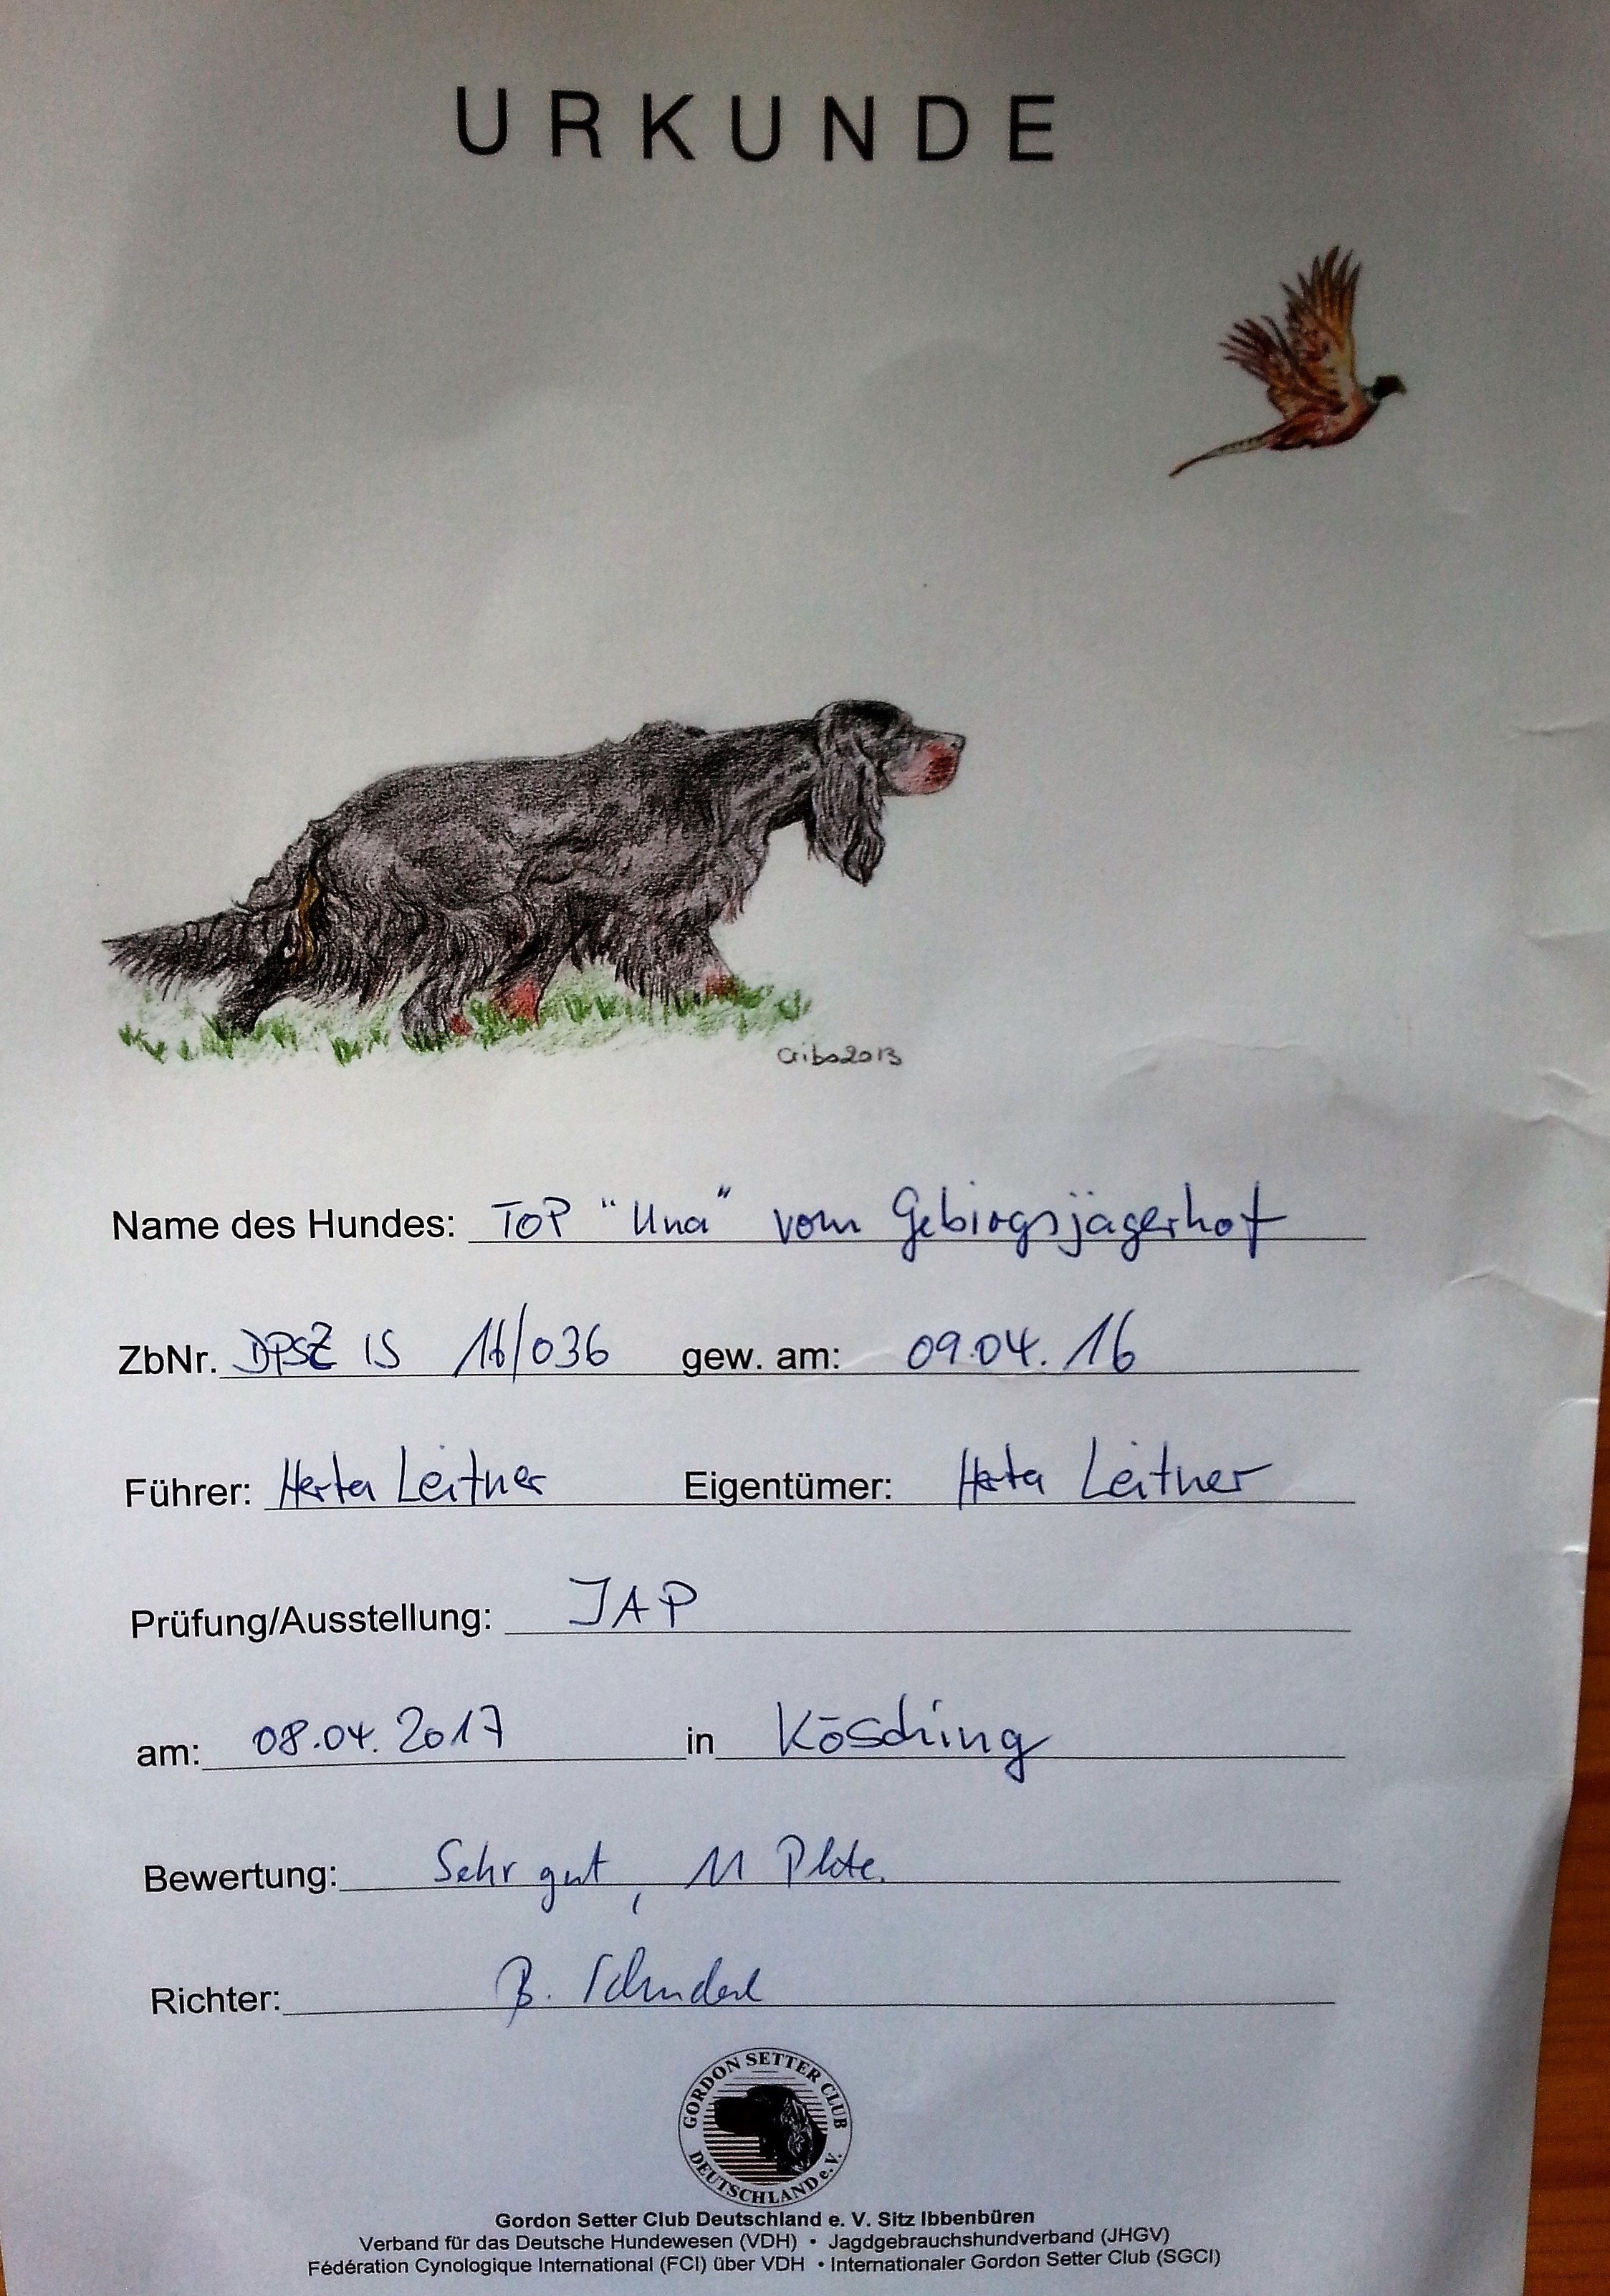 URKUNDE
Cribo2013
Name des Hundes: TOP "Una" vom Gebirgsjägerhof
ZbNr. DPSZ IS 16/036 gew. am: 09.04.16
Führer: Herta Leitner Eigentümer: Herta Leitner
Prüfung/Ausstellung: JAP
am: 08.04.2017 in Kösching
Bewertung: Sehr gut, 11 Pkte.
Richter: B.
GORDON SETTER CLUB
DEUTSCHLAND e.V.
Gordon Setter Club Deutschland e. V. Sitz Ibbenbüren
Verband für das Deutsche Hundewesen (VDH) • Jagdgebrauchshundverband (JHGV)
Fédération Cynologique International (FCI) über VDH • Internationaler Gordon Setter Club (SGCI)